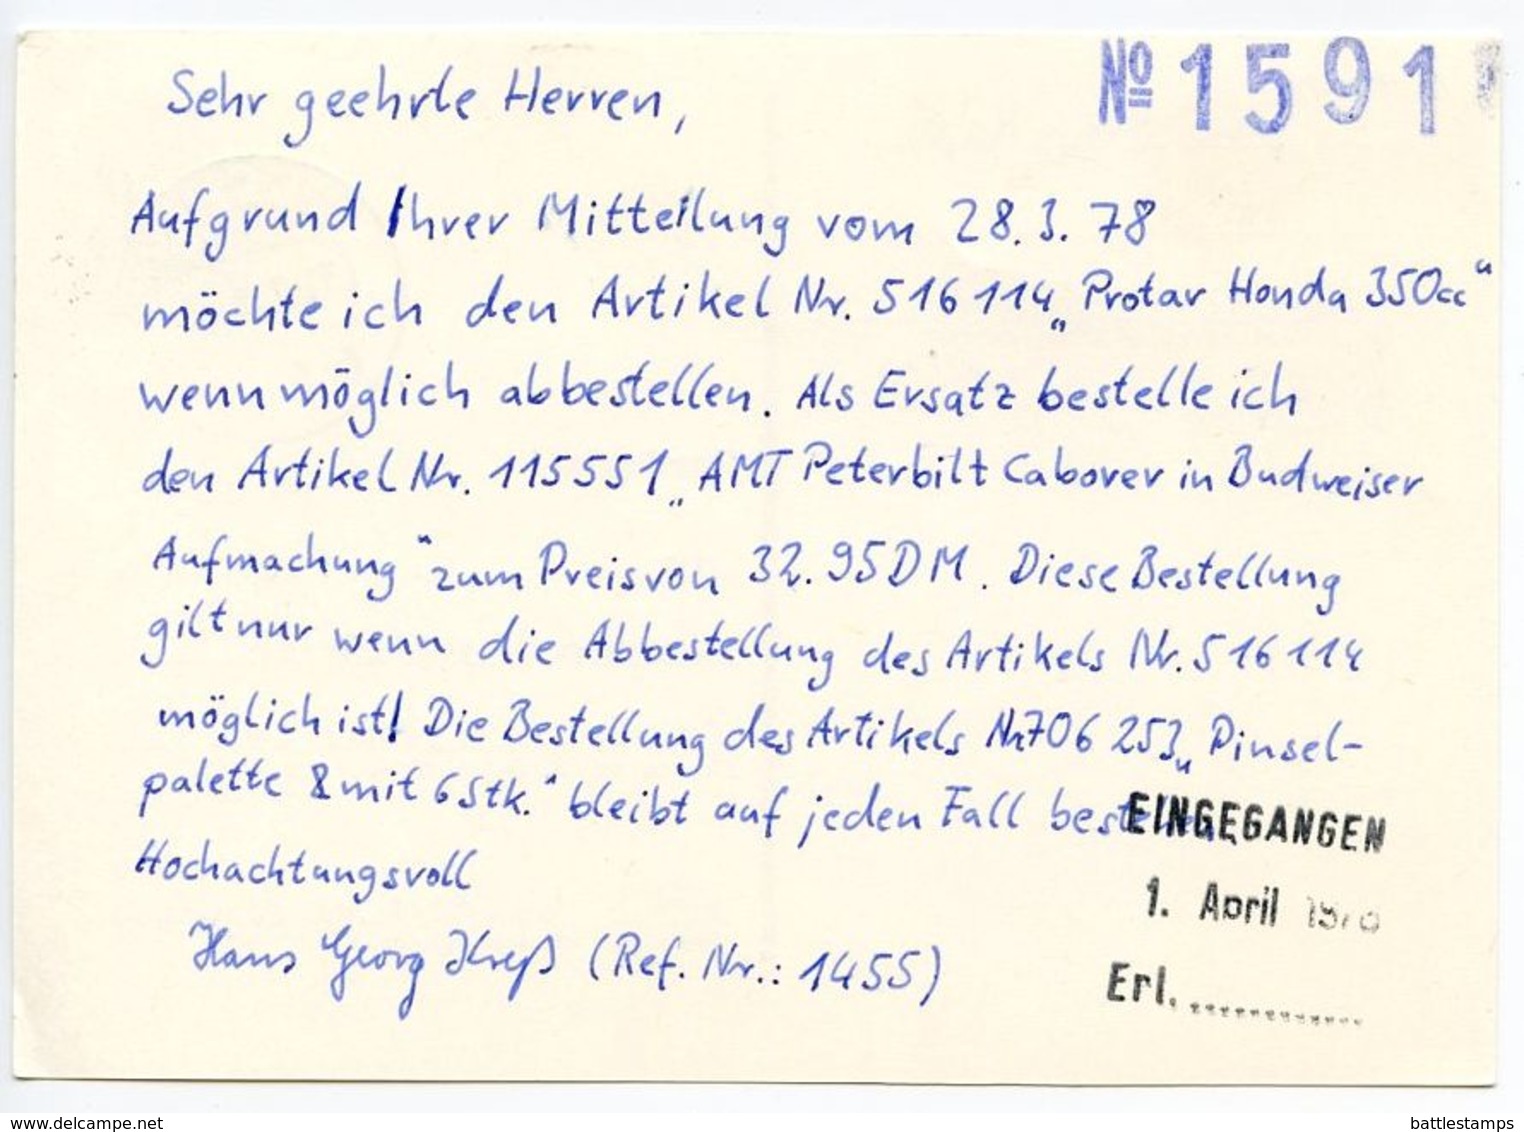 Sehr geehrte Herren,
Nº 1591
Aufgrund Ihrer Mitteilung vom 28.3.78
möchte ich den Artikel Nr. 516114 „Protar Honda 350cc“
wenn möglich abbestellen. Als Ersatz bestelle ich
den Artikel Nr. 115551 „AMT Peterbilt Cabover in Budweiser
Aufmachung“ zum Preis von 32.95 DM. Diese Bestellung
gilt nur wenn die Abbestellung des Artikels Nr. 516114
möglich ist! Die Bestellung des Artikels Nr. 706 253 „Pinsel-
palette 8 mit 6 Stk.“ bleibt auf jeden Fall
EINGEGANGEN
Hochachtungsvoll
1. April
Hans Georg Kreß (Ref. Nr.: 1455)
Erl. ............
delcampe.net
battlestamps